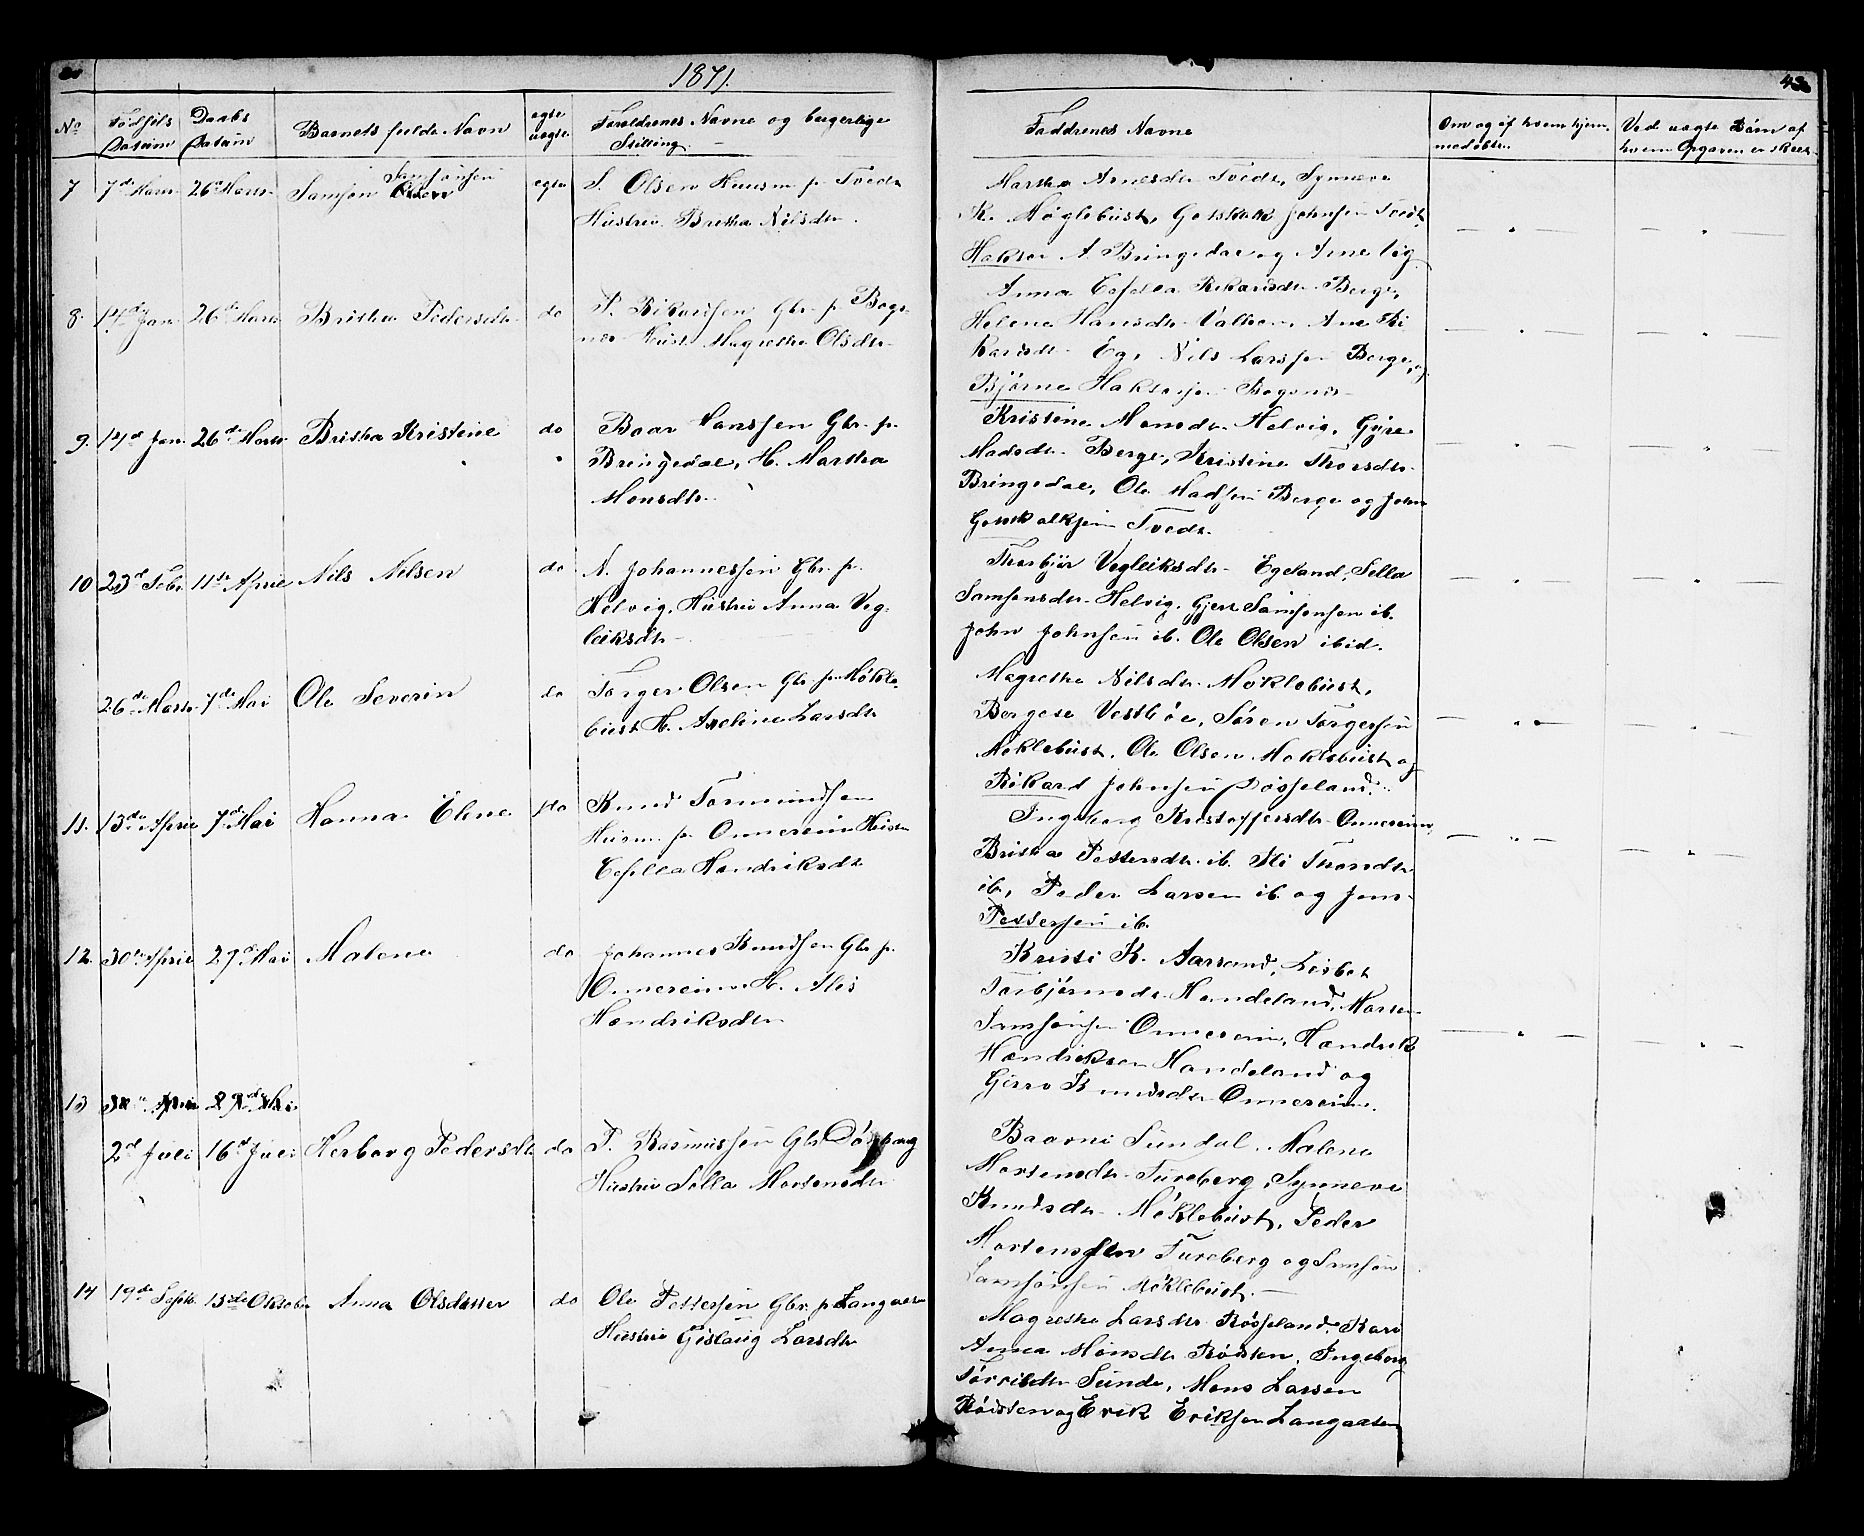 1871.
43
No
Fødsels Datum
Daabs Datum
Barnets fulde Navn
egte uegte
Foreldrenes Navne og borgerlige Stilling.
Faddrenes Navne
Om og af hvem hjemmedøbte.
Ved uegte Børn af hvem Opgaven er skeet.
7 7de Marts 26de Marts Samson Samsonsen egte S. Olsen Huusm. p. Tvedt
Hustru Britha Nilsdtr.
Martha Arnesdtr Tvedt, Synneve
K. Møglebust, Gotskalk Johnsen Tvedt,
Haktor A. Bringedal og Arne
8. 14de Jan 26de Marts Britha Pedersdtr do P. Rikardsen Gbr. p. Bogs-
nes Hust. Magrethe Olsdtr
Anna Rikardsdtr Berge,
Helena Hansdtr Valhem, Ane Ri
kardsdtr Eg, Nils Larssen Berge, og
Bjørne Haktorsen Bogsnes
9. 14de Jan. 26de Marts Britha Kristine do Baar Hanssen Gbr. p.
Bringedal, H. Martha
Monsdtr.
Kristine Monsdtr Helvig, Gyre
Madsdtr Berge, Kristine Thorsdtr
Bringedal, Ole Madsen Berge og John
Gotskalksen Tvedt.
10 23d Febr. 11te April Nils Nilsen do N. Johannessen Gbr. p.
Helvig, Hustru Anna Veg-
leiksdtr
Thorbjør Vegleiksdtr Egeland, Sella
Samsonsdtr Helvig. Gjert Samsonsen ib.
John Johnsen ib. Ole Olsen ibid.
26de Marts 7de Mai Ole Severin do Torger Olsen Gbr. p. Møkle-
bust H. Axeline Larsdtr
Magretha Nilsdtr Møklebust,
Bergete Vestbøe, Søren Torgersen
Møklebust, Ole Olsen Møklebust og
Rikard Johnsen Røsseland.
11. 13de April 7de Mai Hanna Eline do Knud Tormundsen
Huusm. p. Onnereim Hustr
Hendriksdtr
Ingeborg Kristoffersdtr Onnereim,
Britha Pettersdtr ib. Thorsdtr
ib, Peder Larsen ib. og Jens
Pettersen ib.
12. 30te April 29de Mai Malene do Johannes Knudsen Gbr. p.
Onnereim H.
Hendriksdtr
Kristi K. Aarsand, Lisbet
Torbjørnsdtr Handeland,
Samsonsen Onnereim, Hendrik
Hendriksen Handeland og
Knudsdtr Onnereim.
13 30te April 29de Mai
2d Juli 16d Juli Herborg Pedersdtr do P. Rasmussen Gbr.
Hustru Sella Mortensdtr
Baarni Sundal, Malene
Mortensdtr Tureberg, Synneve
Knudsdtr Møklebust, Peder
Mortensen Tureberg og Samson
Samsonsen Møklebust.
14 19de Septb. 15de Oktober Anna Olsdatter do Ole Pettersen Gbr. p. Langaasen
Hustru Gislaug Larsdtr
Magretha Larsdtr Røsseland, Kari
Anna Monsdtr Røisten, Ingeborg
Sunde, Mons Larsen
Røisten og Erik Eriksen Langaasen